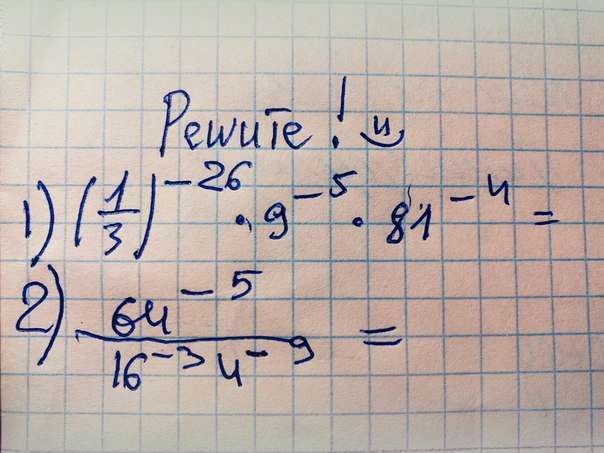 Решите! :)
1) (1/3)^-26 · 9^-5 · 81^-4 =
2) 64^-5 / 16^-3 4^-9 =